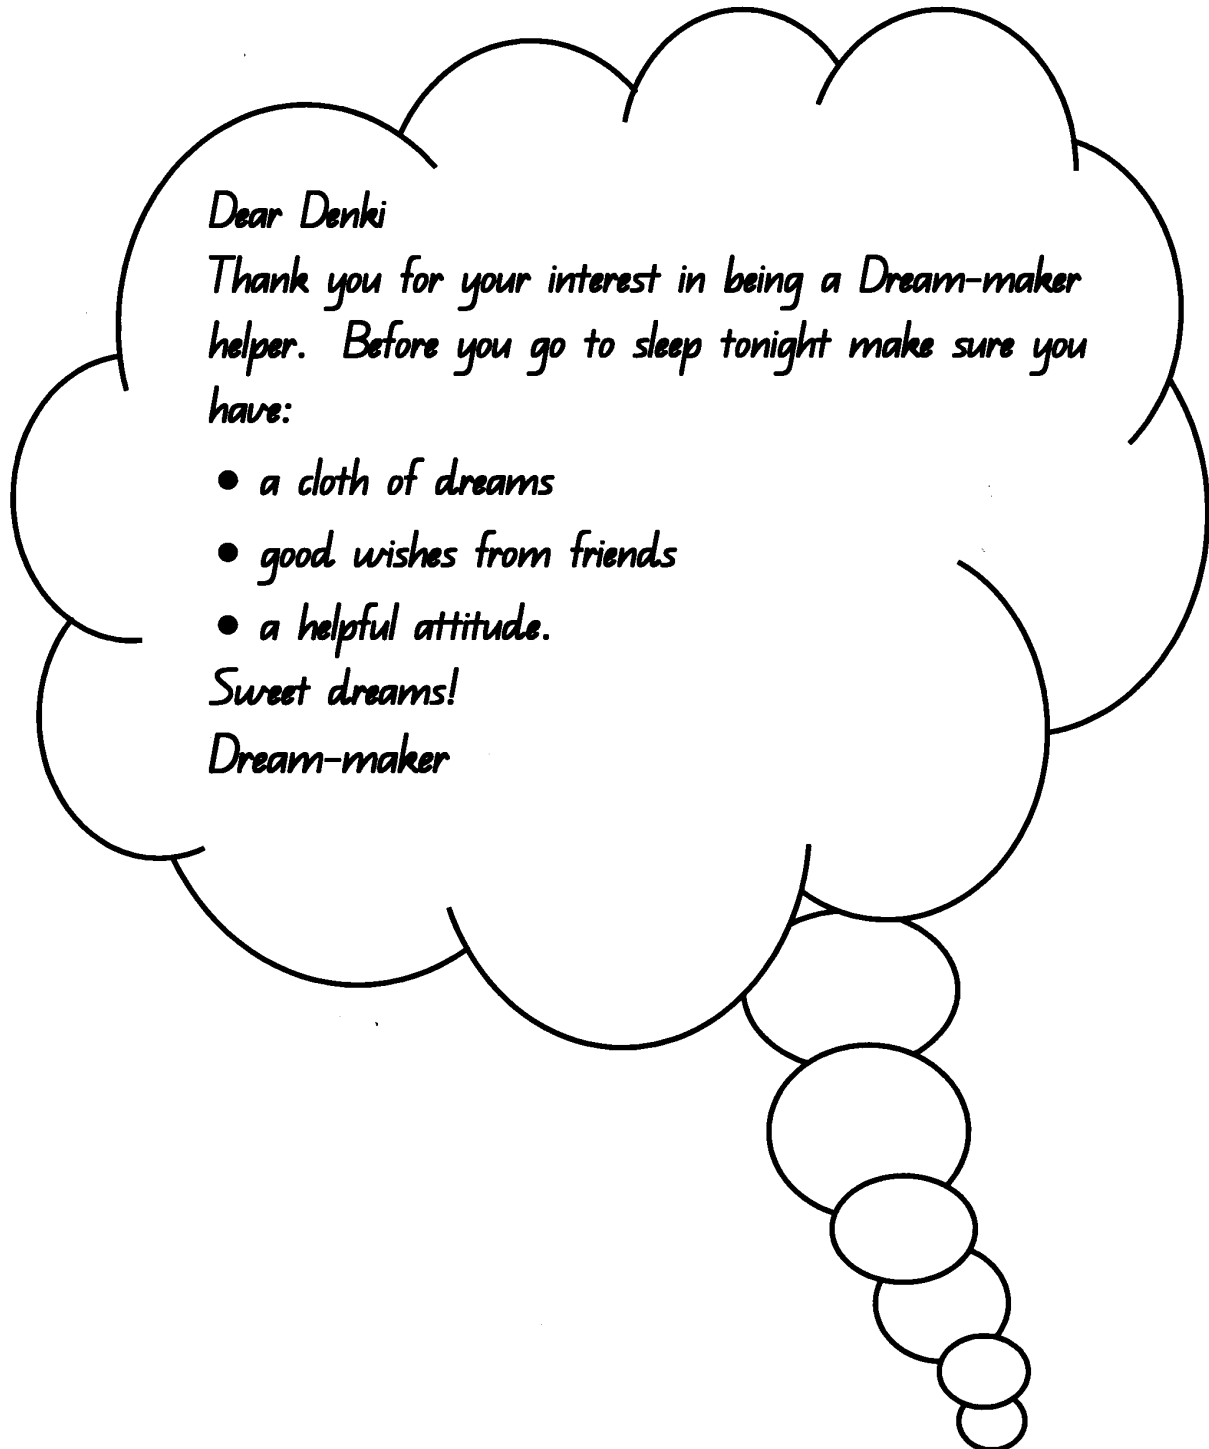 Dear Denki
Thank you for your interest in being a Dream-maker
helper. Before you go to sleep tonight make sure you
have:
• a cloth of dreams
• good wishes from friends
• a helpful attitude.
Sweet dreams!
Dream-maker